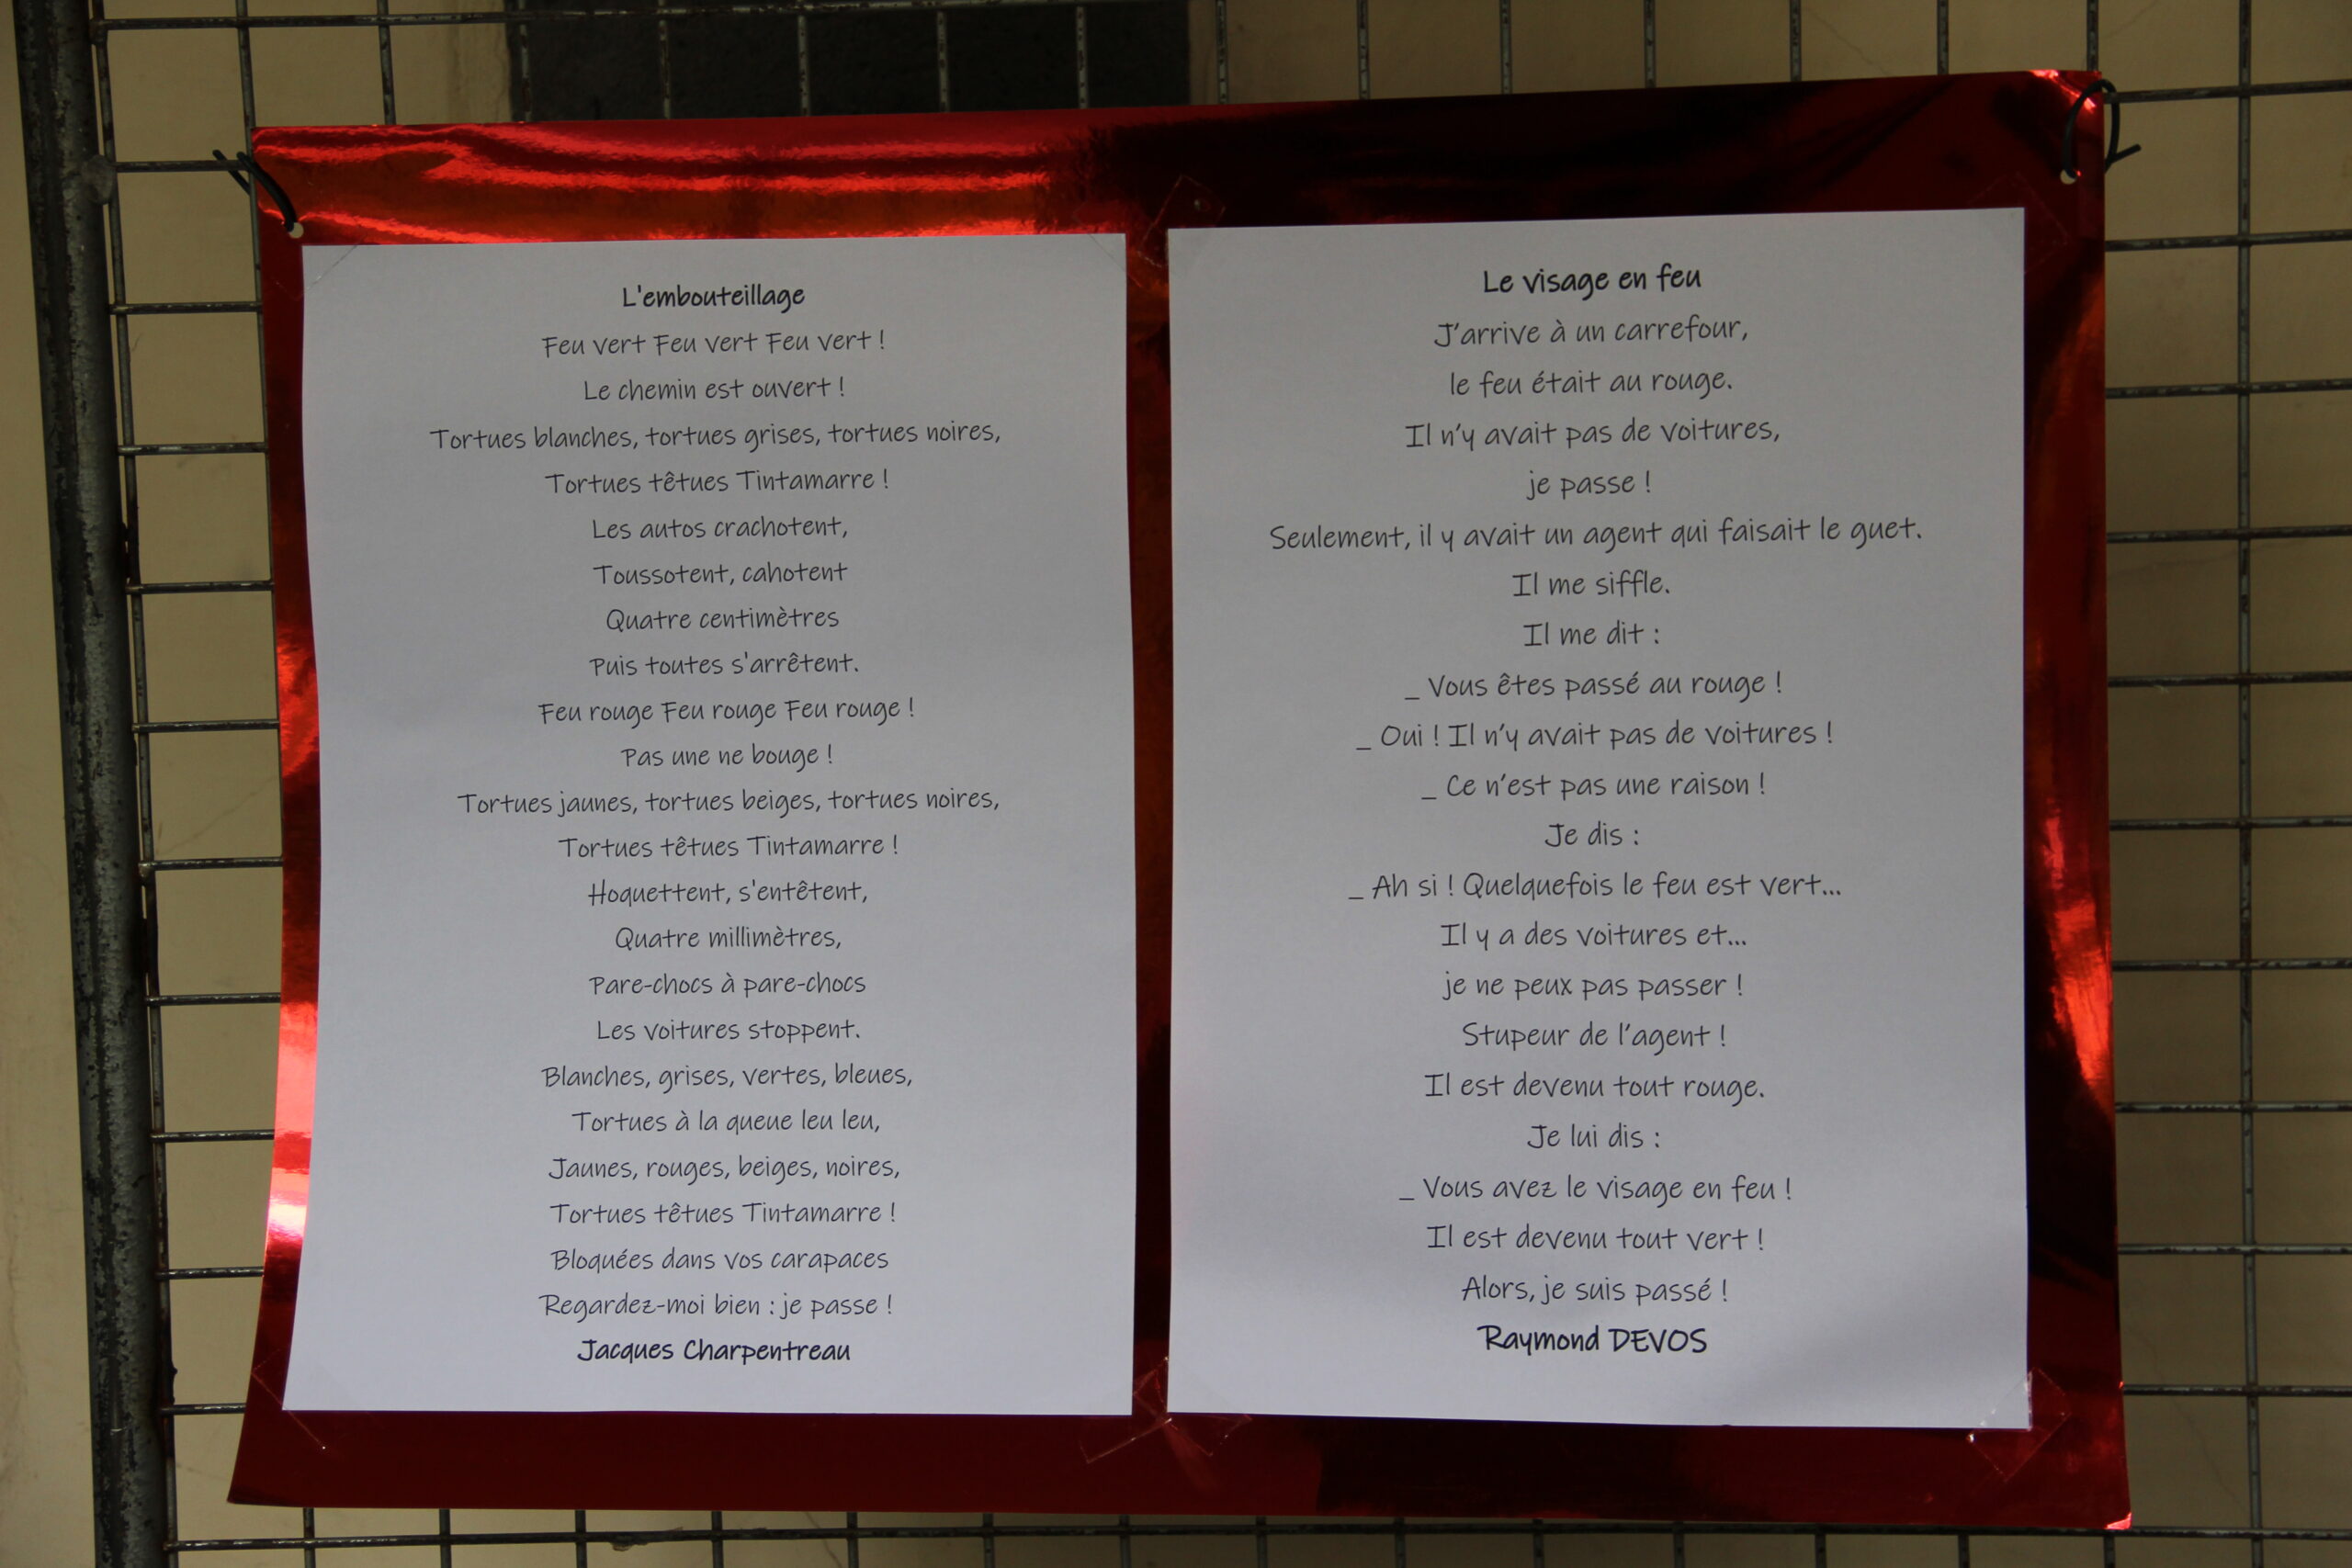 L'embouteillage
Feu vert Feu vert Feu vert !
Le chemin est ouvert !
Tortues blanches, tortues grises, tortues noires,
Tortues têtues Tintamarre !
Les autos crachotent,
Toussotent, cahotent
Quatre centimètres
Puis toutes s'arrêtent.
Feu rouge Feu rouge Feu rouge !
Pas une ne bouge !
Tortues jaunes, tortues beiges, tortues noires,
Tortues têtues Tintamarre !
Hoquettent, s'entêtent,
Quatre millimètres,
Pare-chocs à pare-chocs
Les voitures stoppent.
Blanches, grises, vertes, bleues,
Tortues à la queue leu leu,
Jaunes, rouges, beiges, noires,
Tortues têtues Tintamarre !
Bloquées dans vos carapaces
Regardez-moi bien : je passe !
Jacques Charpentreau
Le visage en feu
J'arrive à un carrefour,
le feu était au rouge.
Il n'y avait pas de voitures,
je passe !
Seulement, il y avait un agent qui faisait le guet.
Il me siffle.
Il me dit :
_ Vous êtes passé au rouge !
_ Oui ! Il n'y avait pas de voitures !
_ Ce n'est pas une raison !
Je dis :
_ Ah si ! Quelquefois le feu est vert...
Il y a des voitures et...
je ne peux pas passer !
Stupeur de l'agent !
Il est devenu tout rouge.
Je lui dis :
_ Vous avez le visage en feu !
Il est devenu tout vert !
Alors, je suis passé !
Raymond DEVOS